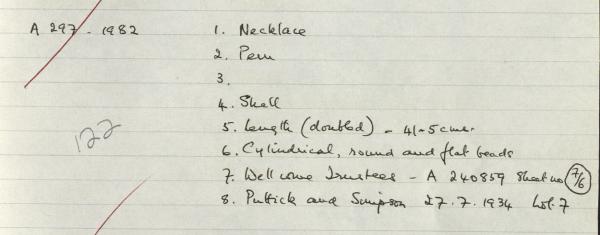 A 297 - 1982
1. Necklace
2. Peru
3.
4. Shell
122
5. Length (doubled) - 41.5 cms.
6. Cylindrical, round and flat beads
7. Wellcome Trustees - A 240859 Sheet no 7/6
8. Puttick and Simpson 27.7.1934 Lot. 7